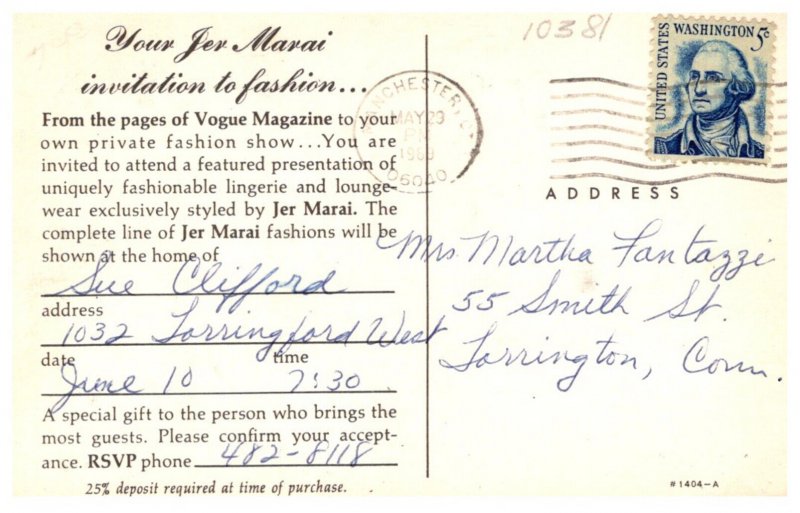 Your Jer Marai
invitation to fashion...
From the pages of Vogue Magazine to your
own private fashion show...You are
invited to attend a featured presentation of
uniquely fashionable lingerie and lounge-
wear exclusively styled by Jer Marai. The
complete line of Jer Marai fashions will be
shown at the home of
Sue Clifford
address
1032 Torringford West
date time
June 10 7:30
A special gift to the person who brings the
most guests. Please confirm your accept-
ance. RSVP phone 482-8118
25% deposit required at time of purchase.
10381
MANCHESTER,
MAY 23
PM
1969
06040
UNITED STATES
WASHINGTON 5¢
ADDRESS
Mrs Martha Fantazzi
55 Smith St.
Torrington, Conn.
#1404-A